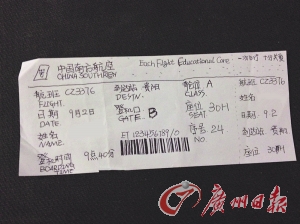 中国南方航空
CHINA SOUTHERN
Each Flight Educational Care
航班 CZ3376
FLIGHT
日期 9月2日
DATE
姓名
NAME
登机时间 9点40分
BOARDING
TIME
到达站 贵阳
DESTN.
登机口
GATE B
ET 123456789/0
舱位 A
CLASS
座位 30H
SEAT
序号 24
NO
航班 CZ3376
姓名
到达站 贵阳
日期 9.2
座位 30H
广州日报